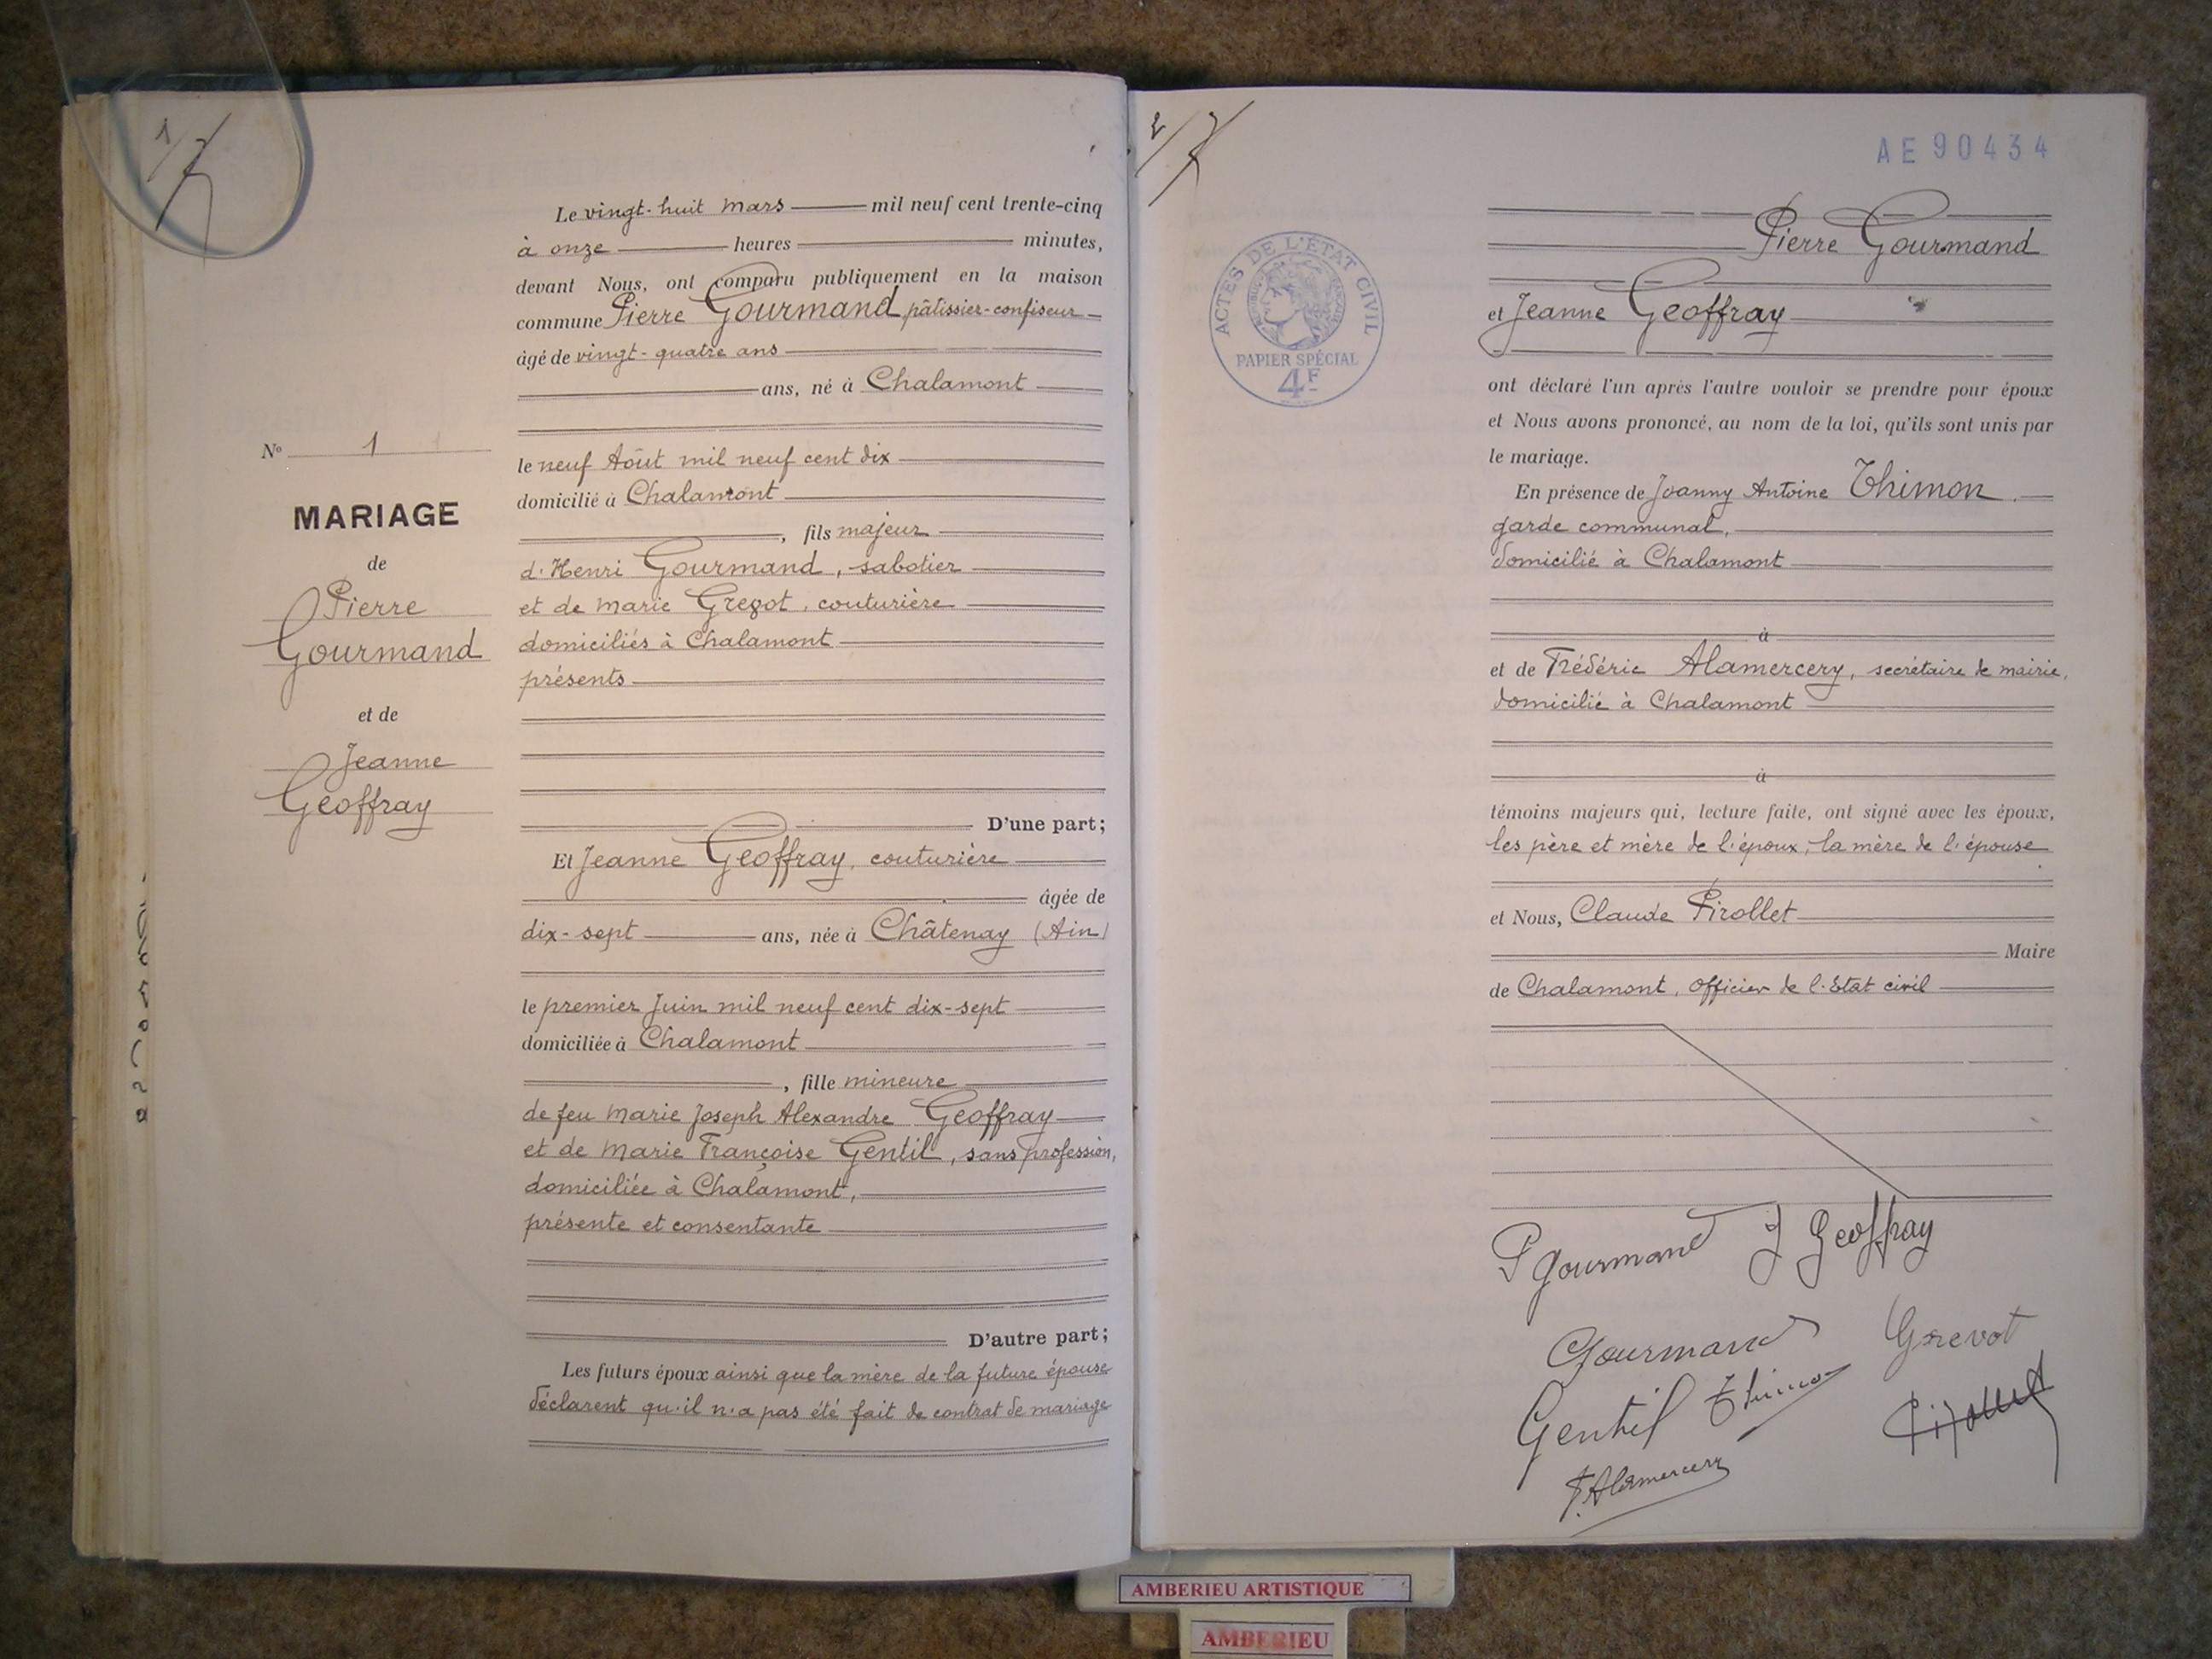 1/7
Le vingt-huit mars mil neuf cent trente-cinq
à onze heures minutes,
devant Nous, ont comparu publiquement en la maison
commune Pierre Gourmand pâtissier-confiseur
âgé de vingt-quatre ans
ans, né à Chalamont
N° 1
le neuf Août mil neuf cent dix
domicilié à Chalamont
MARIAGE
, fils majeur
de
d'Henri Gourmand, sabotier
Pierre
et de Marie Grevot, couturière
Gourmand
domiciliés à Chalamont
présents
et de
Jeanne
Geoffray
D'une part;
Et Jeanne Geoffray, couturière
âgée de
dix-sept ans, née à Châtenay (Ain)
le premier Juin mil neuf cent dix-sept
domiciliée à Chalamont
, fille mineure
de feu Marie Joseph Alexandre Geoffray
et de Marie Françoise Gentil, sans profession,
domiciliée à Chalamont,
présente et consentante
D'autre part;
Les futurs époux ainsi que la mère de la future épouse
déclarent qu'il n'a pas été fait de contrat de mariage
2/7
AE 90434
ACTES DE L'ÉTAT CIVIL
PAPIER SPÉCIAL
4F
Pierre Gourmand
et Jeanne Geoffray
ont déclaré l'un après l'autre vouloir se prendre pour époux
et Nous avons prononcé, au nom de la loi, qu'ils sont unis par
le mariage.
En présence de Joanny Antoine Thimon
garde communal,
domicilié à Chalamont
à
et de Frédéric Alamercery, secrétaire de mairie,
domicilié à Chalamont
à
témoins majeurs qui, lecture faite, ont signé avec les époux,
les père et mère de l'époux, la mère de l'épouse
et Nous, Claude Pirollet
Maire
de Chalamont, Officier de l'Etat civil
P Gourmand J Geoffray
Gourmand Grevot
Gentil Thimon Pirollet
F. Alamercery
AMBERIEU ARTISTIQUE
AMBERIEU